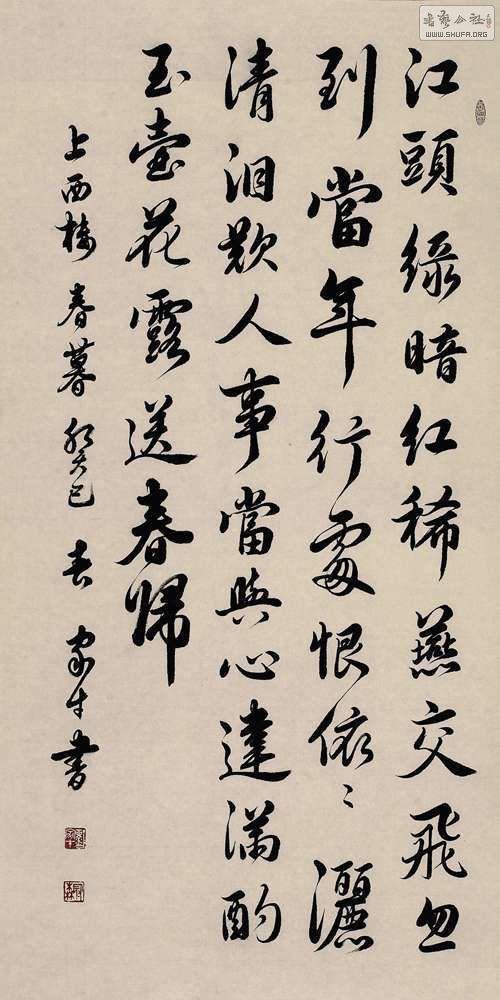 江頭緑暗红稀燕交飛忽
到當年行處恨依〻灑
清泪歎人事當與心違滿酌
玉壺花露送春歸
上西樓春暮癸巳家才書
書藝公社
WWW.SHUFA.ORG